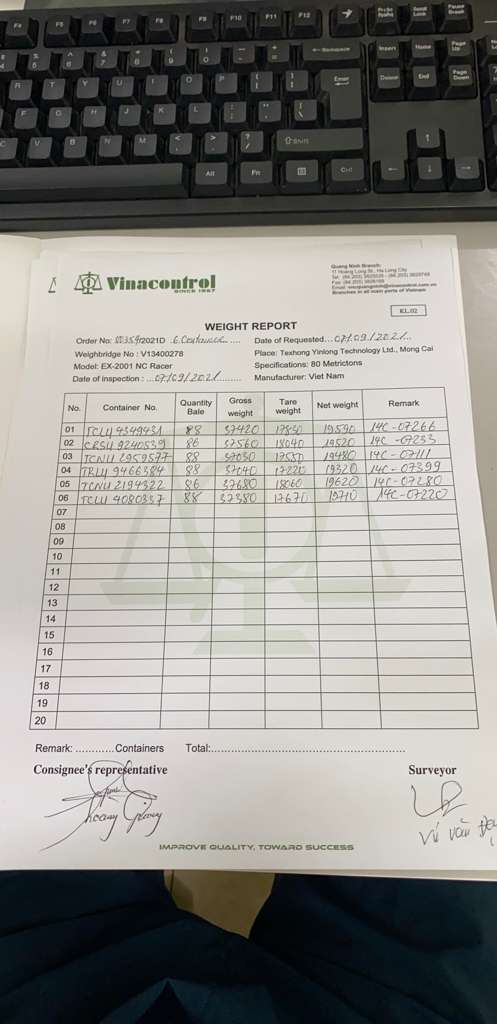 F4 F5 F6 F7 F8 F9 F10 F11 F12 PrtSc SysRq Scroll Lock Pause Break
Backspace Insert Home Page Up
R T Y U I O P Enter Delete End Page Down
F G H J K L
C V B N M Shift
Alt Fn Ctrl
Vinacontrol
SINCE 1957
Quang Ninh Branch:
11 Hoang Long St., Ha Long City
Tel: (84.203) 3825535 - (84.203) 3829749
Fax: (84.203) 3826169
Email: vncquangninh@vinacontrol.com.vn
Branches in all main ports of Vietnam
KL.02
WEIGHT REPORT
Order No: /2021D 6 Container Date of Requested...07/09/2021
Weighbridge No : V13400278 Place: Texhong Yinlong Technology Ltd., Mong Cai
Model: EX-2001 NC Racer Specifications: 80 Metrictons
Date of inspection : ...07/09/2021 Manufacturer: Viet Nam
No. Container No. Quantity Bale Gross weight Tare weight Net weight Remark
01 TCLU 4349431 88 37420 17830 19590 14C-07266
02 CRSU 9240539 86 37560 18040 19520 14C-07233
03 TCNU 2959577 88 37030 17550 19480 14C-07111
04 TRLU 9466384 88 37040 17220 19820 14C-07399
05 TCNU 2194322 86 37680 18060 19620 14C-07280
06 TCLU 4080337 88 37380 17670 19710 14C-07220
07
08
09
10
11
12
13
14
15
16
17
18
19
20
Remark: ............Containers Total:............................................................
Consignee's representative Surveyor
Hoang Giang
Vũ văn
IMPROVE QUALITY, TOWARD SUCCESS